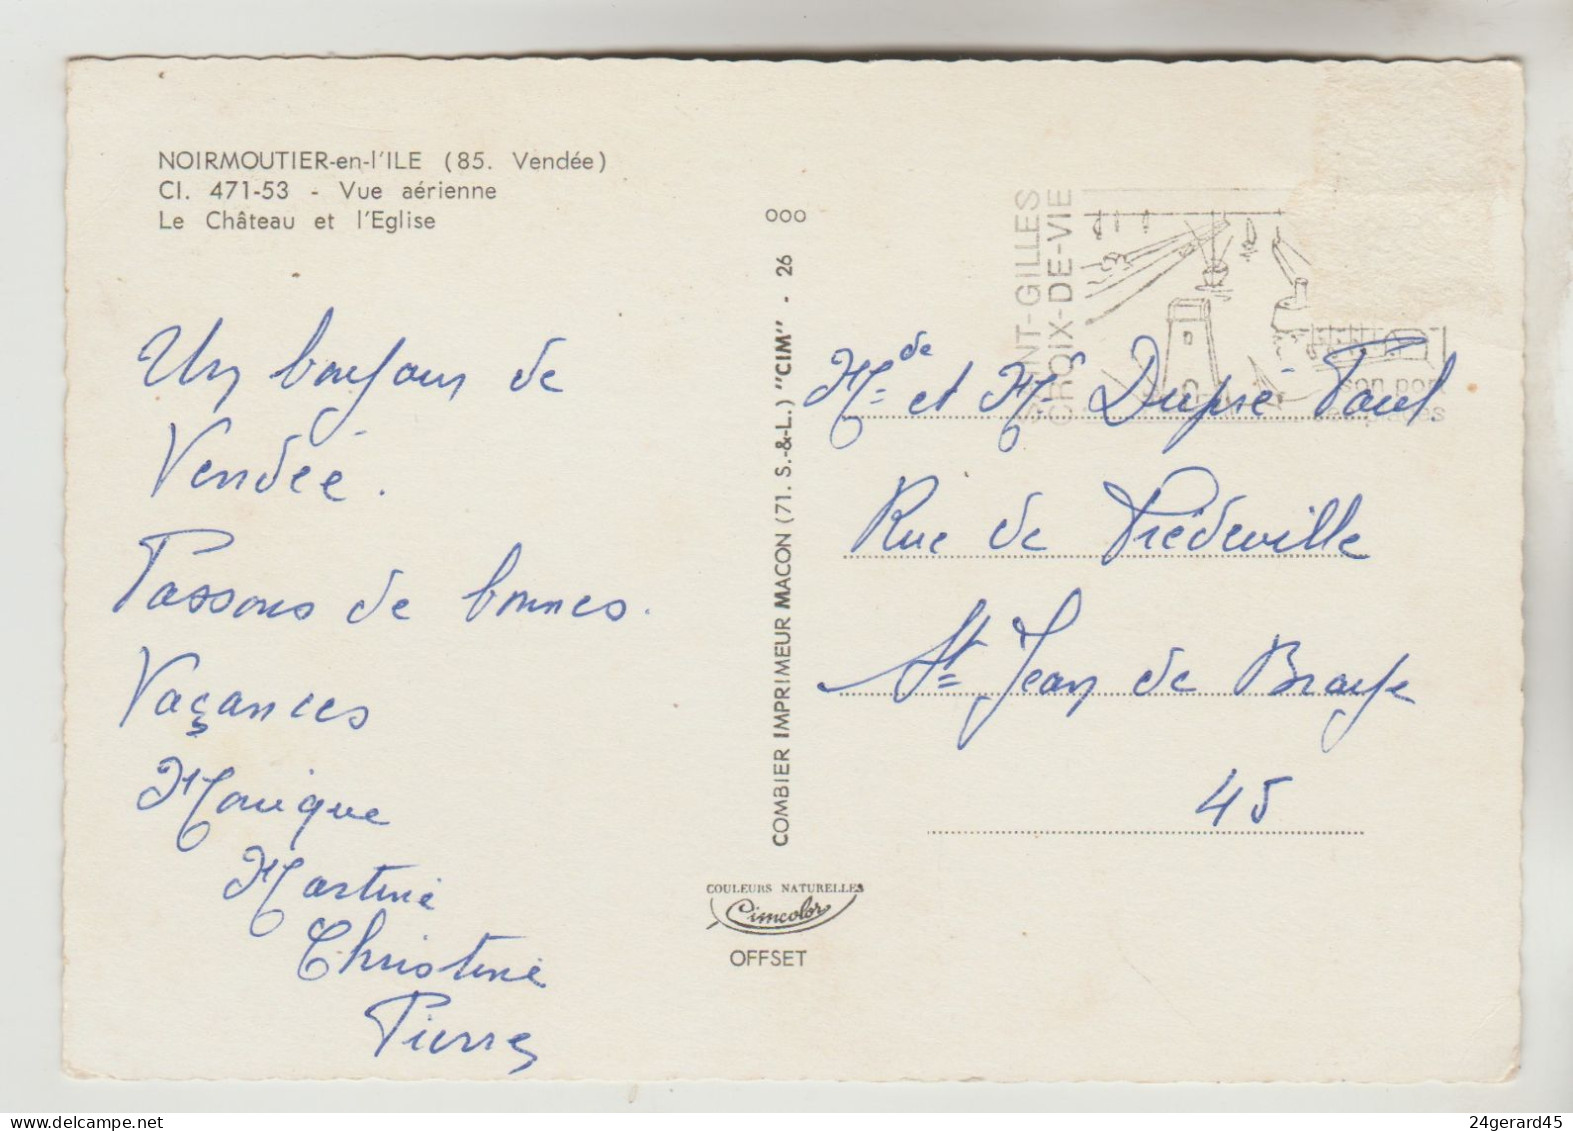 NOIRMOUTIER-en-l'ILE (85. Vendée)
Cl. 471-53 - Vue aérienne
Le Château et l'Eglise
Un bonjour de
Vendée.
Passons de bonnes.
Vaçances
Monique
Martine
Christine
Pierre
COMBIER IMPRIMEUR MACON (71. S.-&-L.) "CIM" - 26 000
COULEURS NATURELLES
Cimcolor
OFFSET
SAINT-GILLES
CROIX-DE-VIE
son port
ses plages
Mde et Mr Dupré Paul
Rue de Frédeville
St Jean de Braye
45
www.delcampe.net
24gerard45